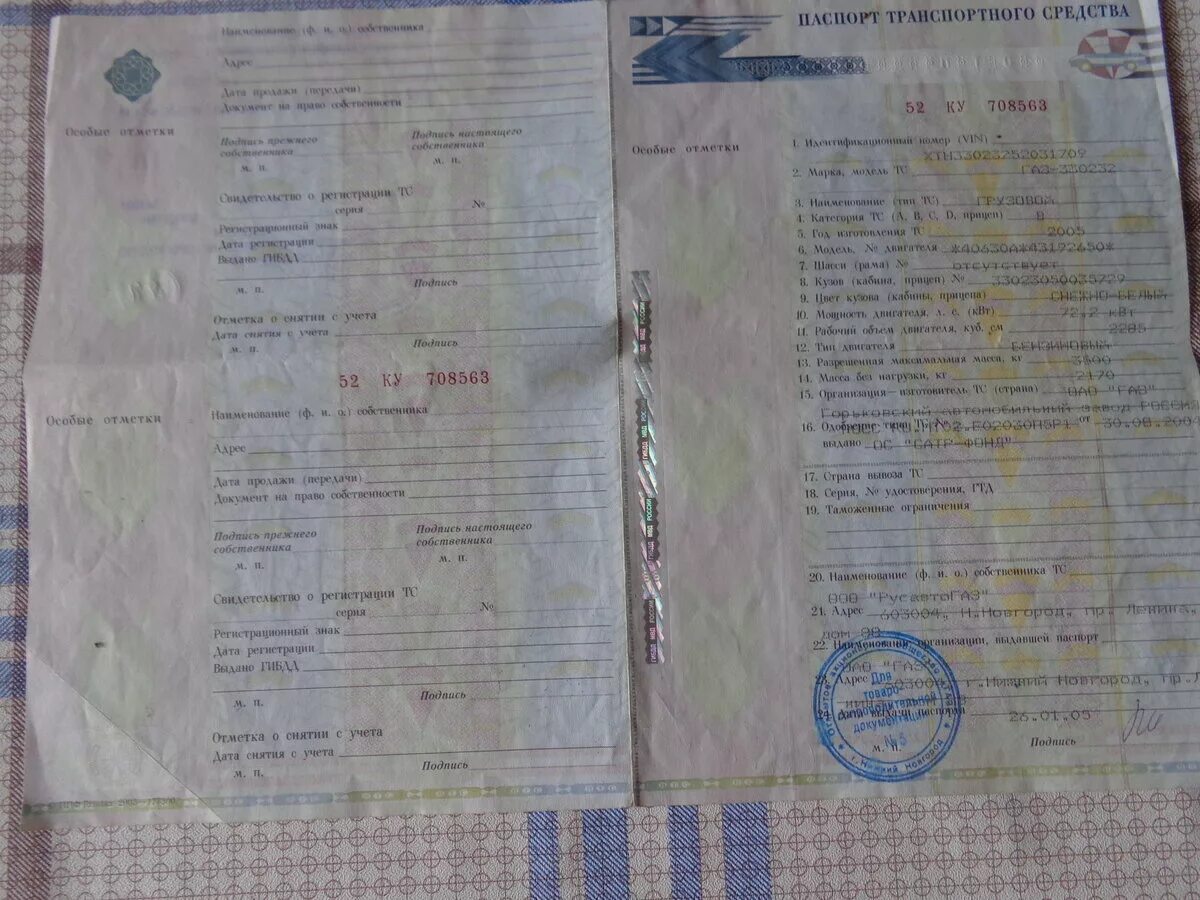 Наименование (ф. и. о.) собственника
Адрес
Дата продажи (передачи)
Документ на право собственности
Особые отметки
Подпись прежнего собственника
Подпись настоящего собственника
м. п.
м. п.
Свидетельство о регистрации ТС
серия №
Регистрационный знак
Дата регистрации
Выдано ГИБДД
м. п. Подпись
Отметка о снятии с учета
Дата снятия с учета
м. п. Подпись
52 КУ 708563
Особые отметки
Наименование (ф. и. о.) собственника
Адрес
Дата продажи (передачи)
Документ на право собственности
Подпись прежнего собственника
Подпись настоящего собственника
м. п.
м. п.
Свидетельство о регистрации ТС
серия №
Регистрационный знак
Дата регистрации
Выдано ГИБДД
м. п. Подпись
Отметка о снятии с учета
Дата снятия с учета
м. п. Подпись
ПАСПОРТ ТРАНСПОРТНОГО СРЕДСТВА
52 КУ 708563
Особые отметки
1. Идентификационный номер (VIN)
ХТН33023252031709
2. Марка, модель ТС ГАЗ-330232
3. Наименование (тип ТС) ГРУЗОВОЙ
4. Категория ТС (А, В, С, D, прицеп) В
5. Год изготовления ТС 2005
6. Модель, № двигателя *40630А*43192650*
7. Шасси (рама) № отсутствует
8. Кузов (кабина, прицеп) № 33023050035729
9. Цвет кузова (кабины, прицепа) СНЕЖНО-БЕЛЫЙ
10. Мощность двигателя, л. с. (кВт) 72,2 кВт
11. Рабочий объем двигателя, куб. см 2285
12. Тип двигателя БЕНЗИНОВЫЙ
13. Разрешенная максимальная масса, кг 3500
14. Масса без нагрузки, кг 2170
15. Организация–изготовитель ТС (страна) ОАО "ГАЗ"
Горьковский автомобильный завод РОССИЯ
16. Одобрение типа ТС № Е02030П5Р1 от 30.08.200
выдано ОС "САТР-ФОНД"
17. Страна вывоза ТС
18. Серия, № удостоверения, ГТД
19. Таможенные ограничения
20. Наименование (ф. и. о.) собственника ТС
ООО "РусавтоГАЗ"
21. Адрес 603004, Н.Новгород, пр. Ленина,
дом 98
22. Наименование организации, выдавшей паспорт
ОАО "ГАЗ"
23. Адрес 603004 г.Нижний Новгород, пр.Л
24. Дата выдачи паспорта 26.01.05
м. п. Подпись
Для
товаро-
сопроводительной
документации
№ 5
г. Нижний Новгород
ГИБДД МВД РОССИИ